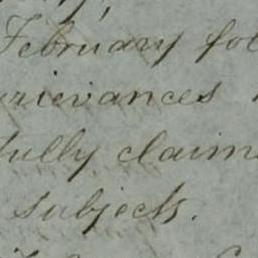 February fol
rievances
fully claim
subjects.